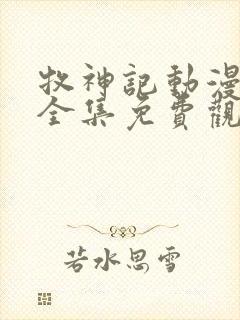 牧神記動漫
全集免費觀
若水思雪